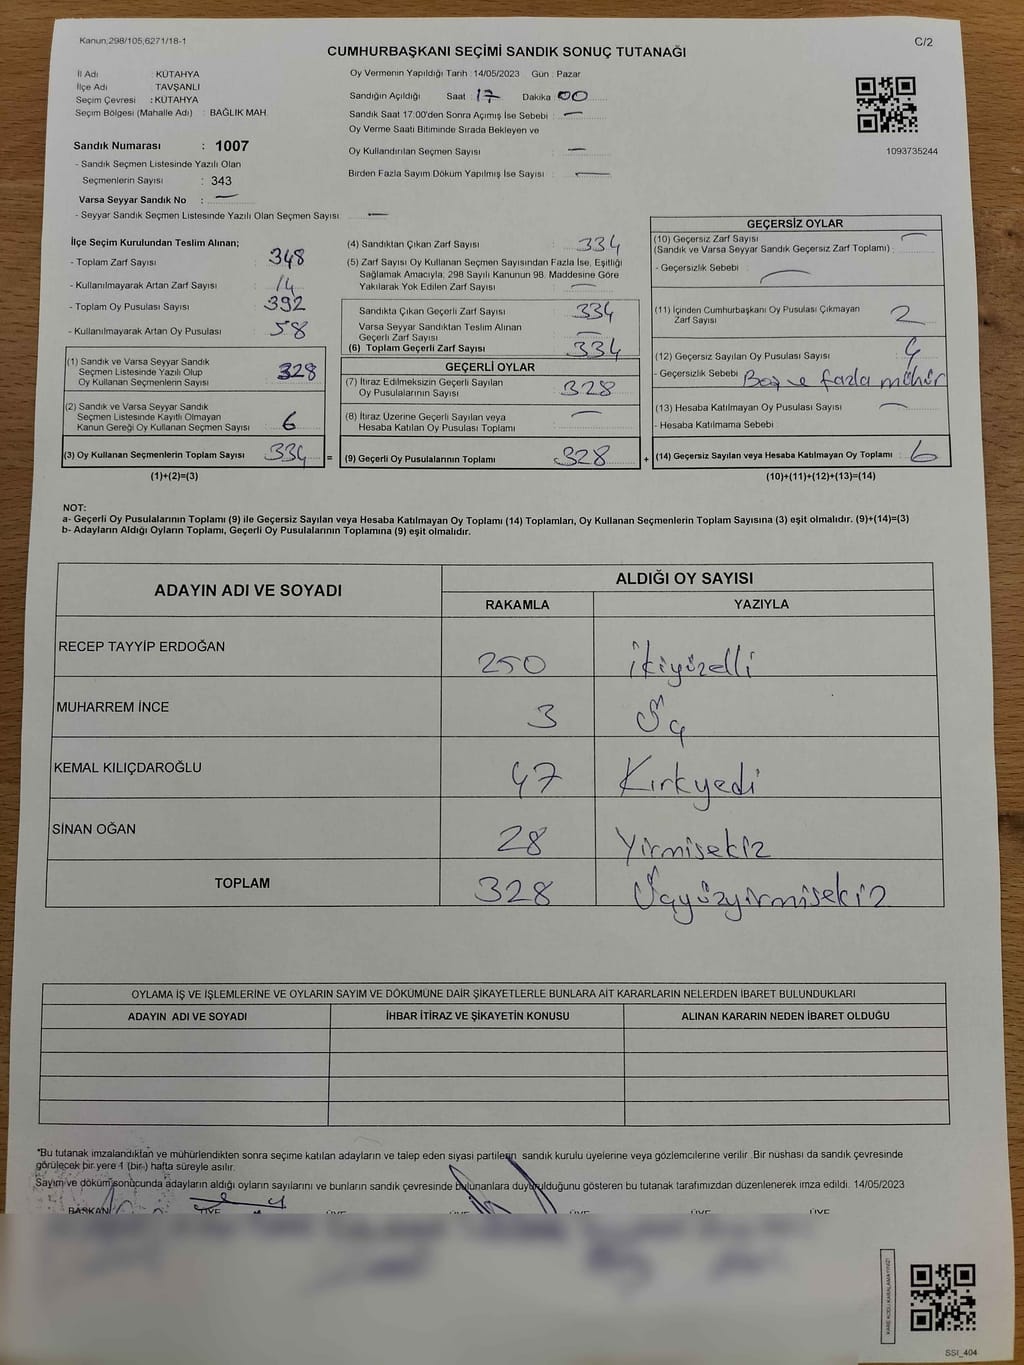 Kanun;298/105,6271/18-1
C/2
CUMHURBAŞKANI SEÇİMİ SANDIK SONUÇ TUTANAĞI
İl Adı : KÜTAHYA
İlçe Adı : TAVŞANLI
Seçim Çevresi : KÜTAHYA
Seçim Bölgesi (Mahalle Adı) : BAĞLIK MAH.
Oy Vermenin Yapıldığı Tarih : 14/05/2023 Gün : Pazar
Sandığın Açıldığı Saat : 17 Dakika : 00
Sandık Saat 17:00'den Sonra Açımış İse Sebebi : —
Oy Verme Saati Bitiminde Sırada Bekleyen ve
Oy Kullandırılan Seçmen Sayısı : —
Birden Fazla Sayım Döküm Yapılmış İse Sayısı : —
1093735244
Sandık Numarası : 1007
- Sandık Seçmen Listesinde Yazılı Olan
Seçmenlerin Sayısı : 343
Varsa Seyyar Sandık No : —
- Seyyar Sandık Seçmen Listesinde Yazılı Olan Seçmen Sayısı : —
İlçe Seçim Kurulundan Teslim Alınan;
- Toplam Zarf Sayısı : 348
- Kullanılmayarak Artan Zarf Sayısı : 14
- Toplam Oy Pusulası Sayısı : 392
- Kullanılmayarak Artan Oy Pusulası : 58
(1) Sandık ve Varsa Seyyar Sandık
Seçmen Listesinde Yazılı Olup
Oy Kullanan Seçmenlerin Sayısı : 328
(2) Sandık ve Varsa Seyyar Sandık
Seçmen Listesinde Kayıtlı Olmayan
Kanun Gereği Oy Kullanan Seçmen Sayısı : 6
(3) Oy Kullanan Seçmenlerin Toplam Sayısı : 334 =
(1)+(2)=(3)
(4) Sandıktan Çıkan Zarf Sayısı : 334
(5) Zarf Sayısı Oy Kullanan Seçmen Sayısından Fazla İse, Eşitliği
Sağlamak Amacıyla; 298 Sayılı Kanunun 98. Maddesine Göre
Yakılarak Yok Edilen Zarf Sayısı : —
Sandıkta Çıkan Geçerli Zarf Sayısı : 334
Varsa Seyyar Sandıktan Teslim Alınan
Geçerli Zarf Sayısı : —
(6) Toplam Geçerli Zarf Sayısı : 334
GEÇERLİ OYLAR
(7) İtiraz Edilmeksizin Geçerli Sayılan
Oy Pusulalarının Sayısı : 328
(8) İtiraz Üzerine Geçerli Sayılan veya
Hesaba Katılan Oy Pusulası Toplamı : —
(9) Geçerli Oy Pusulalarının Toplamı : 328 +
GEÇERSİZ OYLAR
(10) Geçersiz Zarf Sayısı : —
(Sandık ve Varsa Seyyar Sandık Geçersiz Zarf Toplamı)
- Geçersizlik Sebebi : —
(11) İçinden Cumhurbaşkanı Oy Pusulası Çıkmayan
Zarf Sayısı : 2
(12) Geçersiz Sayılan Oy Pusulası Sayısı : 4
- Geçersizlik Sebebi : Boş ve fazla mühür
(13) Hesaba Katılmayan Oy Pusulası Sayısı : —
- Hesaba Katılmama Sebebi
(14) Geçersiz Sayılan veya Hesaba Katılmayan Oy Toplamı : 6
(10)+(11)+(12)+(13)=(14)
NOT:
a- Geçerli Oy Pusulalarının Toplamı (9) ile Geçersiz Sayılan veya Hesaba Katılmayan Oy Toplamı (14) Toplamları, Oy Kullanan Seçmenlerin Toplam Sayısına (3) eşit olmalıdır. (9)+(14)=(3)
b- Adayların Aldığı Oyların Toplamı, Geçerli Oy Pusulalarının Toplamına (9) eşit olmalıdır.
ADAYIN ADI VE SOYADI
ALDIĞI OY SAYISI
RAKAMLA YAZIYLA
RECEP TAYYİP ERDOĞAN 250 ikiyüzelli
MUHARREM İNCE 3 Üç
KEMAL KILIÇDAROĞLU 47 Kırkyedi
SİNAN OĞAN 28 Yirmisekiz
TOPLAM 328 Üçyüzyirmisekiz
OYLAMA İŞ VE İŞLEMLERİNE VE OYLARIN SAYIM VE DÖKÜMÜNE DAİR ŞİKAYETLERLE BUNLARA AİT KARARLARIN NELERDEN İBARET BULUNDUKLARI
ADAYIN ADI VE SOYADI İHBAR İTİRAZ VE ŞİKAYETİN KONUSU ALINAN KARARIN NEDEN İBARET OLDUĞU
*Bu tutanak imzalandıktan ve mühürlendikten sonra seçime katılan adayların ve talep eden siyasi partilerin sandık kurulu üyelerine veya gözlemcilerine verilir. Bir nüshası da sandık çevresinde
görülecek bir yere 1 (bir) hafta süreyle asılır.
Sayım ve döküm sonucunda adayların aldığı oyların sayılarını ve bunların sandık çevresinde bulunanlara duyurulduğunu gösteren bu tutanak tarafımızdan düzenlenerek imza edildi. 14/05/2023
BAŞKAN ÜYE ÜYE ÜYE ÜYE ÜYE ÜYE
KARE KODU KARALAMAYINIZ!
SSI_404